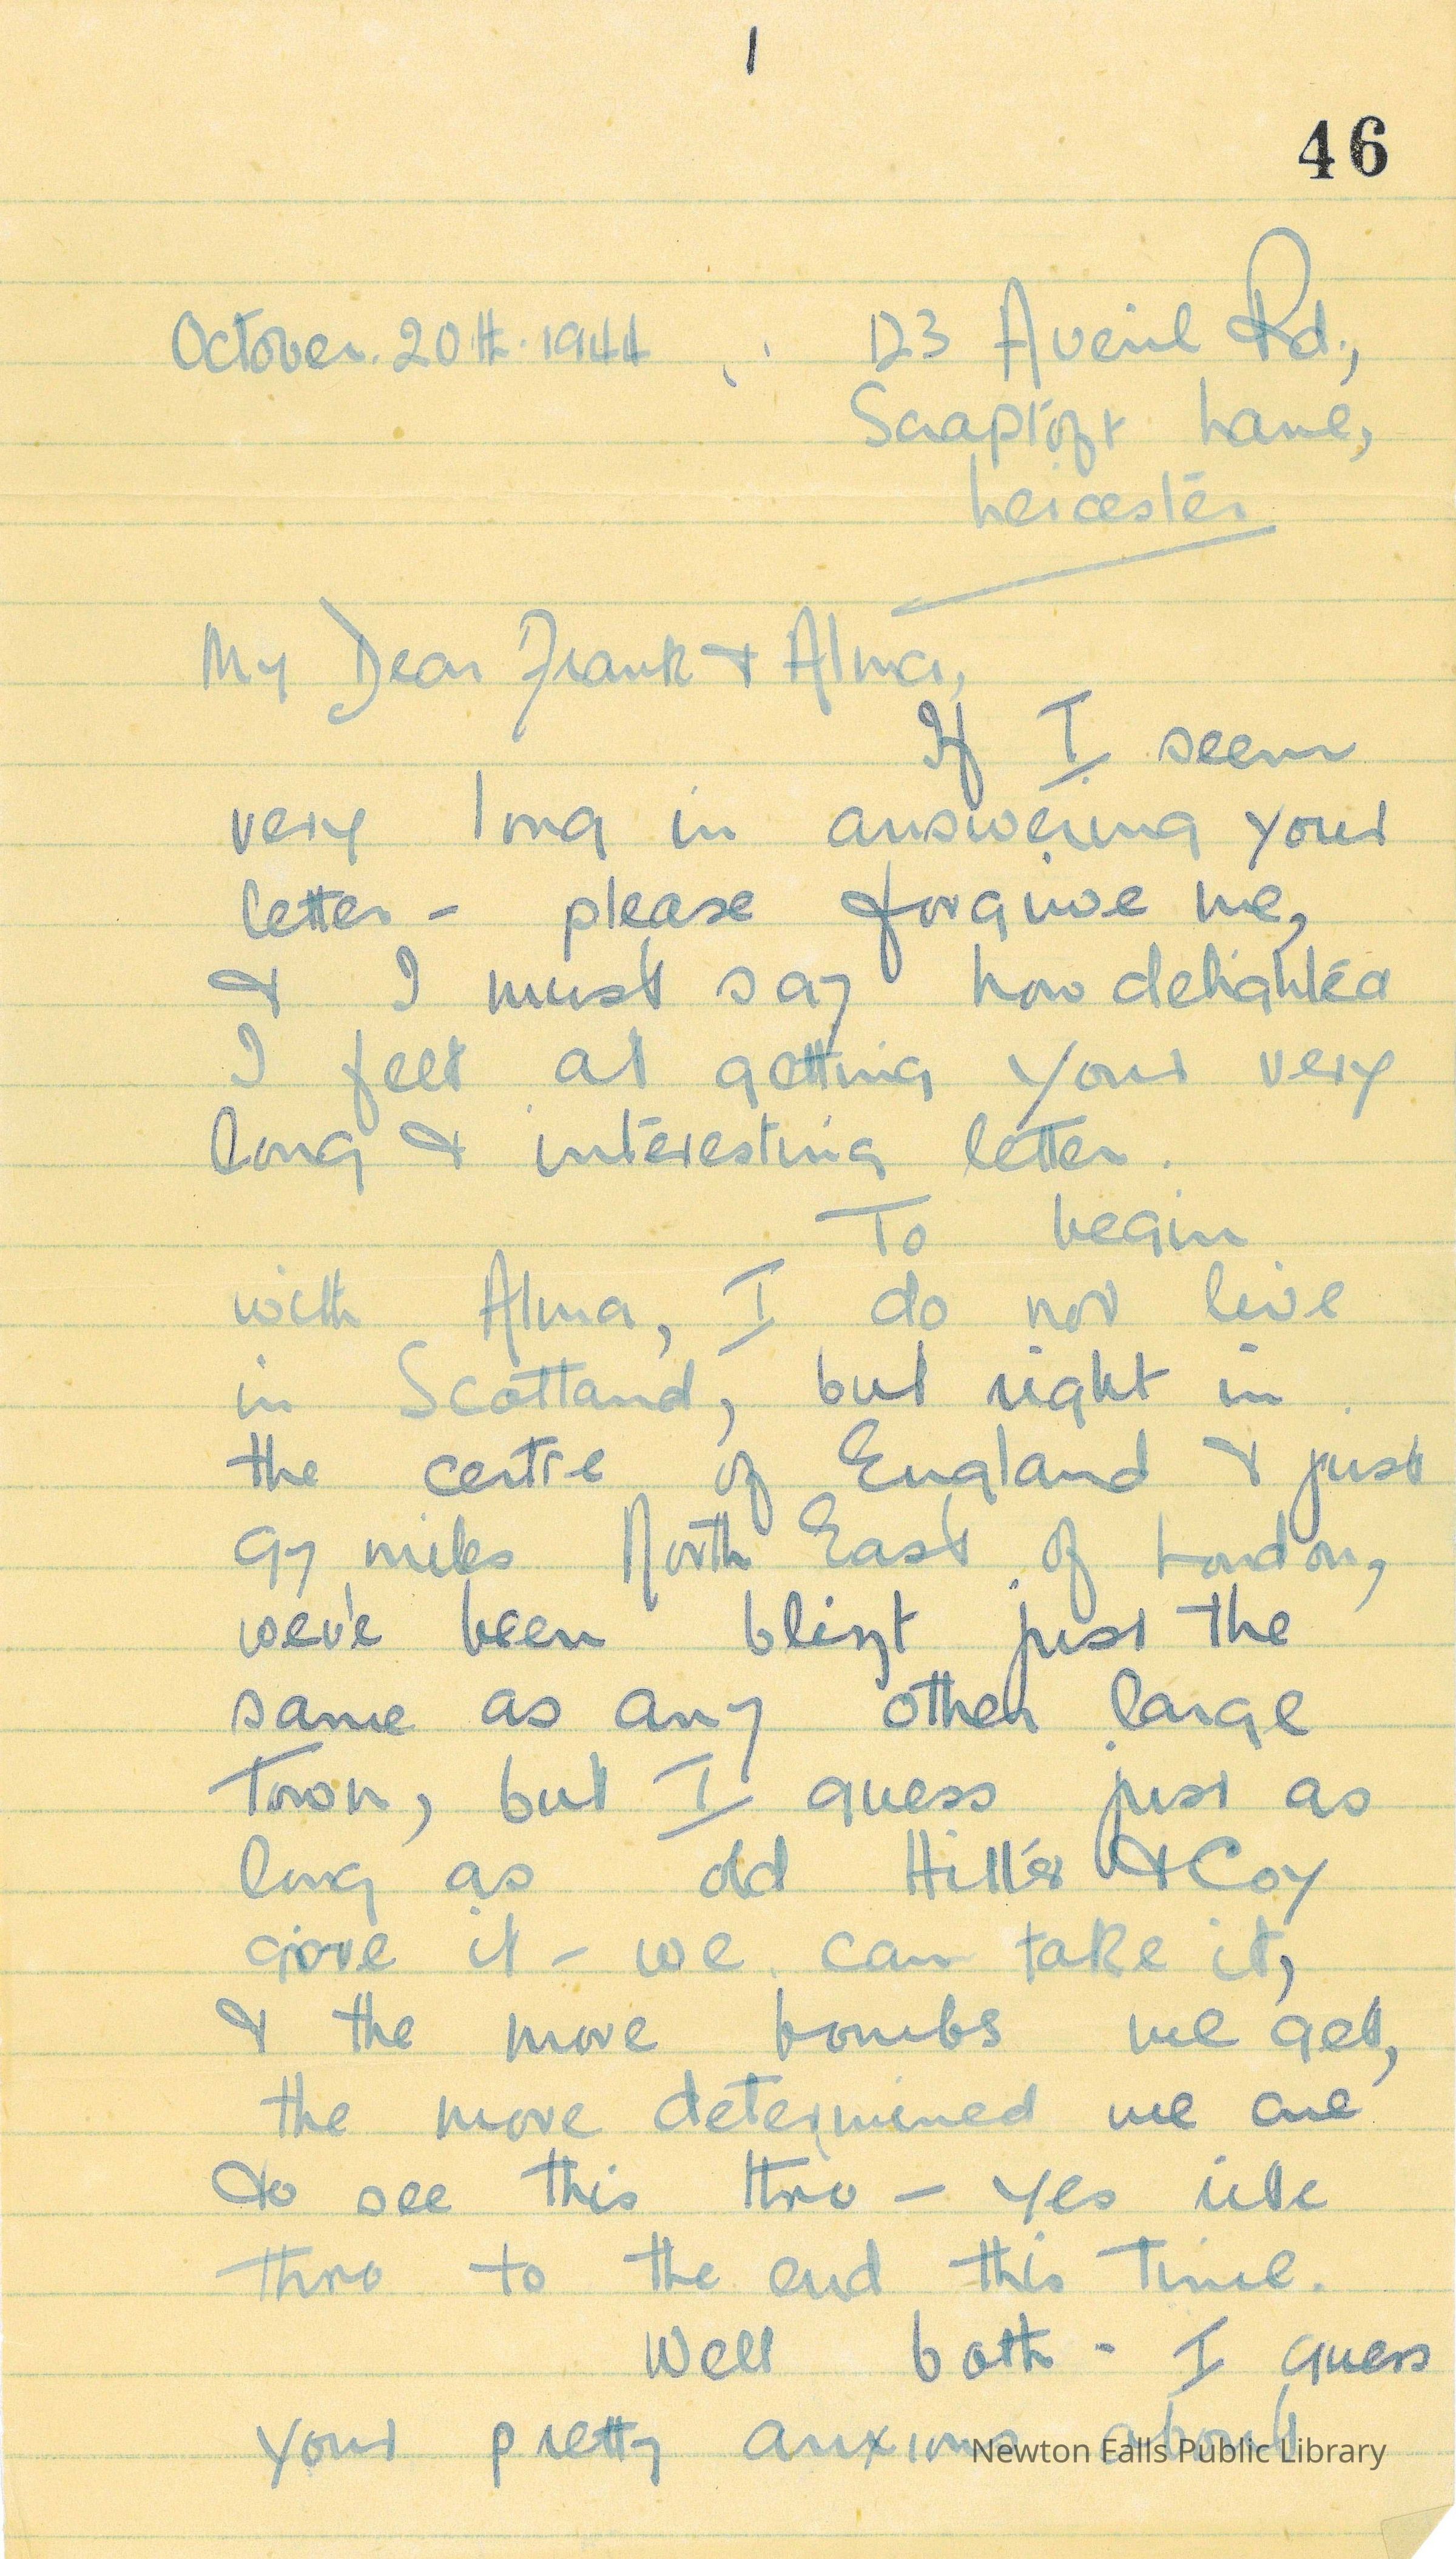 1
46
October. 20th. 1944
123 Averil Rd.,
Scraptoft Lane,
Leicester
My Dear Frank & Alma,
If I seem
very long in answering your
letter - please forgive me,
& I must say how delighted
I felt at getting your very
long & interesting letter.
To begin
with Alma, I do not live
in Scotland, but right in
the centre of England & just
97 miles North East of London,
we've been blizt just the
same as any other large
Town, but I guess just as
long as old Hitler & Coy
give it - we can take it,
& the more bombs we get,
the more determined we are
to see this thro - yes
thro to the end this time.
Well both - I guess
your pretty anxious about
Newton Falls Public Library